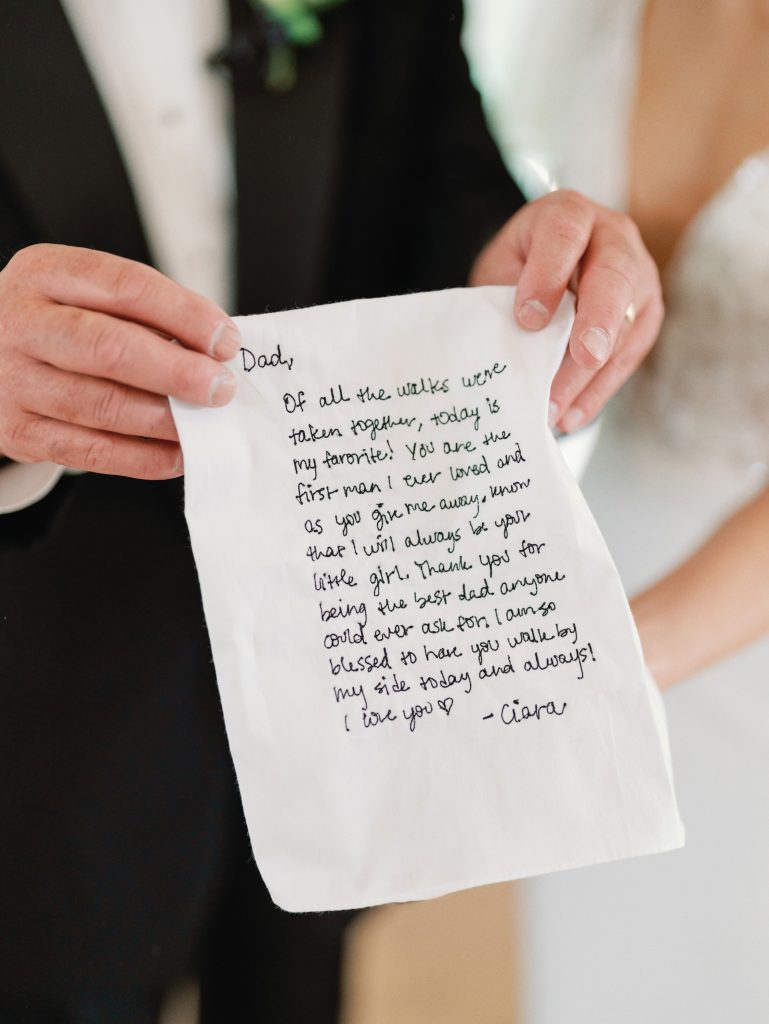 Dad,
Of all the walks we've
taken together, today is
my favorite! You are the
first man I ever loved and
as you give me away. know
that I will always be your
little girl. Thank you for
being the best dad anyone
could ever ask for. I am so
blessed to have you walk by
my side today and always!
I love you♡ - Ciara